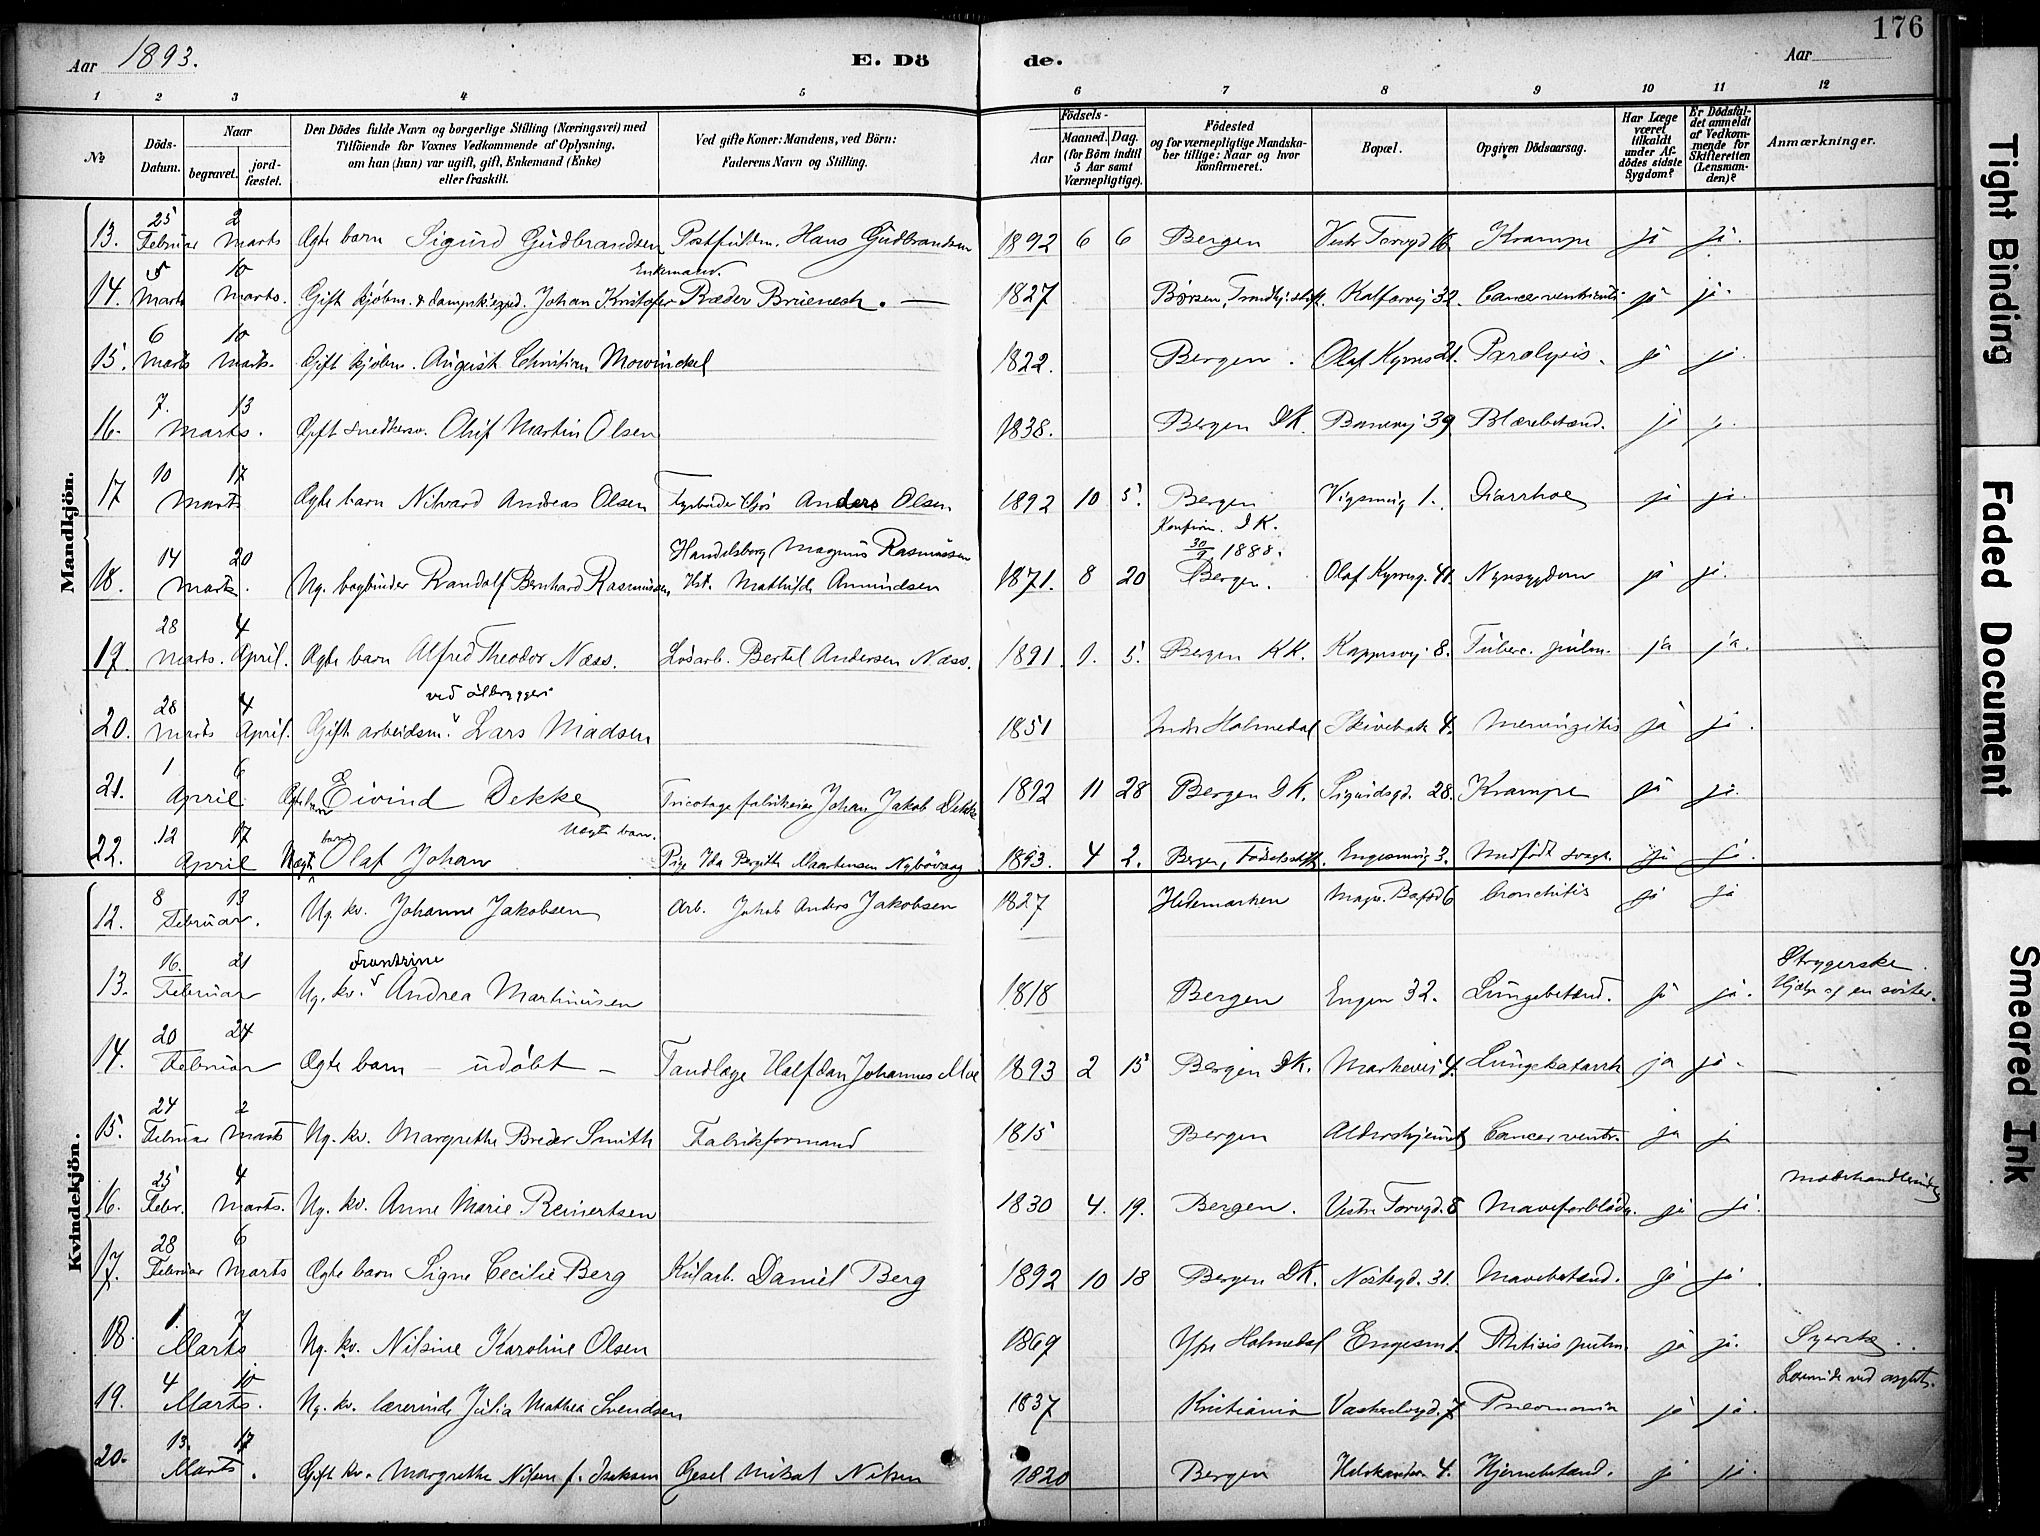 176
Aar 1893.
E. Dö
de.
Aar
1 2 3 4 5 6 7 8 9 10 11 12
No
Döds-Datum.
Naar
begravet.
jord-fæstet.
Den Dödes fulde Navn og borgerlige Stilling (Næringsvei) med
Tilföiende for Voxnes Vedkommende af Oplysning,
om han (hun) var ugift, gift, Enkemand (Enke)
eller fraskilt.
Ved gifte Koner: Mandens, ved Börn:
Faderens Navn og Stilling.
Födsels-
Aar
Maaned. Dag.
(for Börn indtil
5 Aar samt
Værnepligtige).
Födested
og for værnepligtige Mandska-
ber tillige: Naar og hvor
konfirmeret.
Bopæl.
Opgiven Dödsaarsag.
Har Læge
været
tilkaldt
under Af-
dödes sidste
Sygdom?
Er Dödsfal-
det anmeldt
af Vedkom-
mende for
Skifteretten
(Lensman-
den)?
Anmærkninger.
Mandkjön.
13. 25 Februar 2 Marts Ægte barn Sigurd Gudbrandsen Postfuldm. Hans Gudbrandsen 1892 6 6 Bergen Vestr Torvgd 16 Krampe ja ja.
Enkemand.
14. 5 Marts 10 Marts. Gift kjøbm. & dampsk.exped. Johan Kristofer Ræder Bruenech. — 1827 Børsen, Trondhj. stift. Kalfarvej 32. Cancer ventriculi ja ja.
15. 6 Marts 10 Marts. Gift kjøbm. August Christian Mowinckel 1822. Bergen. Olaf Kyrres 21. Paralysis. ja ja.
16. 7. 13 Marts. Gift snedkersv. Oluf Martin Olsen 1838. Bergen DK. Banevej 39 Blærebetænd. ja ja.
17 10 17 Marts Ægte barn Nikvard Andreas Olsen Fyrbøder Anders Olsen 1892 10 5. Bergen 1. Diarrhoe ja ja.
Konfirm. DK. 30/9 1888.
18. 14 20 Marts. Ug. bogbinder Randolf Bernhard Rasmussen, Handelsborg Magnus Rasmussen Hst. Mathilde Amundsen 1871. 8 20 Bergen. Olaf Kyrresg. 41. Nyresygdom ja ja.
19. 28 Marts. 4 April. Ægte barn Alfred Theodor Næss. Løsarb. Bertel Andersen Næss. 1891. 9. 5. Bergen KK. 8. Tuberc. pulm. ja ja.
ved ølbryggeri
20. 28 Marts 4 April. Gift arbeidsm. Lars Madsen 1851 Indr Holmedal Skivebak 4. Meningitis ja ja.
21. 1 6 April Ægte barn Eivind Dekke Tricotage fabrikeier Johan Jakob Dekke 1892 11 28 Bergen DK. Sigurdsgd. 28. Krampe ja ja.
22. 12 17 April Uægt. barn Olaf Johan Uægte barn. Pige Ida Bergitte Maartensen 1893. 4 2. Bergen, Fødselsstift. 3. Medfødt svagh. ja ja.
Kvindekjön.
12. 8 13 Februar. Ug. kv. Johanne Jakobsen Arb. Jakob Anders Jakobsen 1827 Hedemarken 6 bronchitis ja ja
13. 16. 21 Februar Ug. kv. Frantzine Andrea Martinusen 1818 Bergen Engen 32. Lungebetænd. ja ja. Strygerske. Hjælp af en søster.
14. 20 24 Februar Ægte barn – udøbt – Tandlæge Halfdan Johannes Moe 1893 2 15 Bergen DK. Markevei 4. Lungekatarrh ja ja.
15. 24 Februar 2 Marts Ug. kv. Margrethe Breder Smith Fabrikformand 1815 Bergen Aldershjemmet Cancer ventr. ja ja
16. 25 Febr. 4 Marts. Ug. kv. Anne Marie Reinertsen 1830 4. 19. Bergen. Vestre Torvgd. 8 Maveforblødn. ja ja.
17. 28 Februar 6 Marts Ægte barn Signe Cecilie Berg Kularb. Daniel Berg 1892 10 18 Bergen DK. Nøstegd. 31. Mavebetænd. ja ja.
18. 1. 7 Marts Ug. kv. Nilsine Karoline Olsen 1869 Ytre Holmedal Phtisis pulm. ja ja. Syerske.
19. 4 10 Marts. Ug. kv. lærerinde Julia Mathea Svendsen 1837 Kristiania 7 Pneomonia ja ja.
20. 13. 17 Marts. Gift kv. Margrethe Nilsen f. Isaksen Gesel Mikal Nilsen 1820 Bergen 4. Hjernebetænd. ja ja.
Tight Binding
Faded Document
Smeared Ink